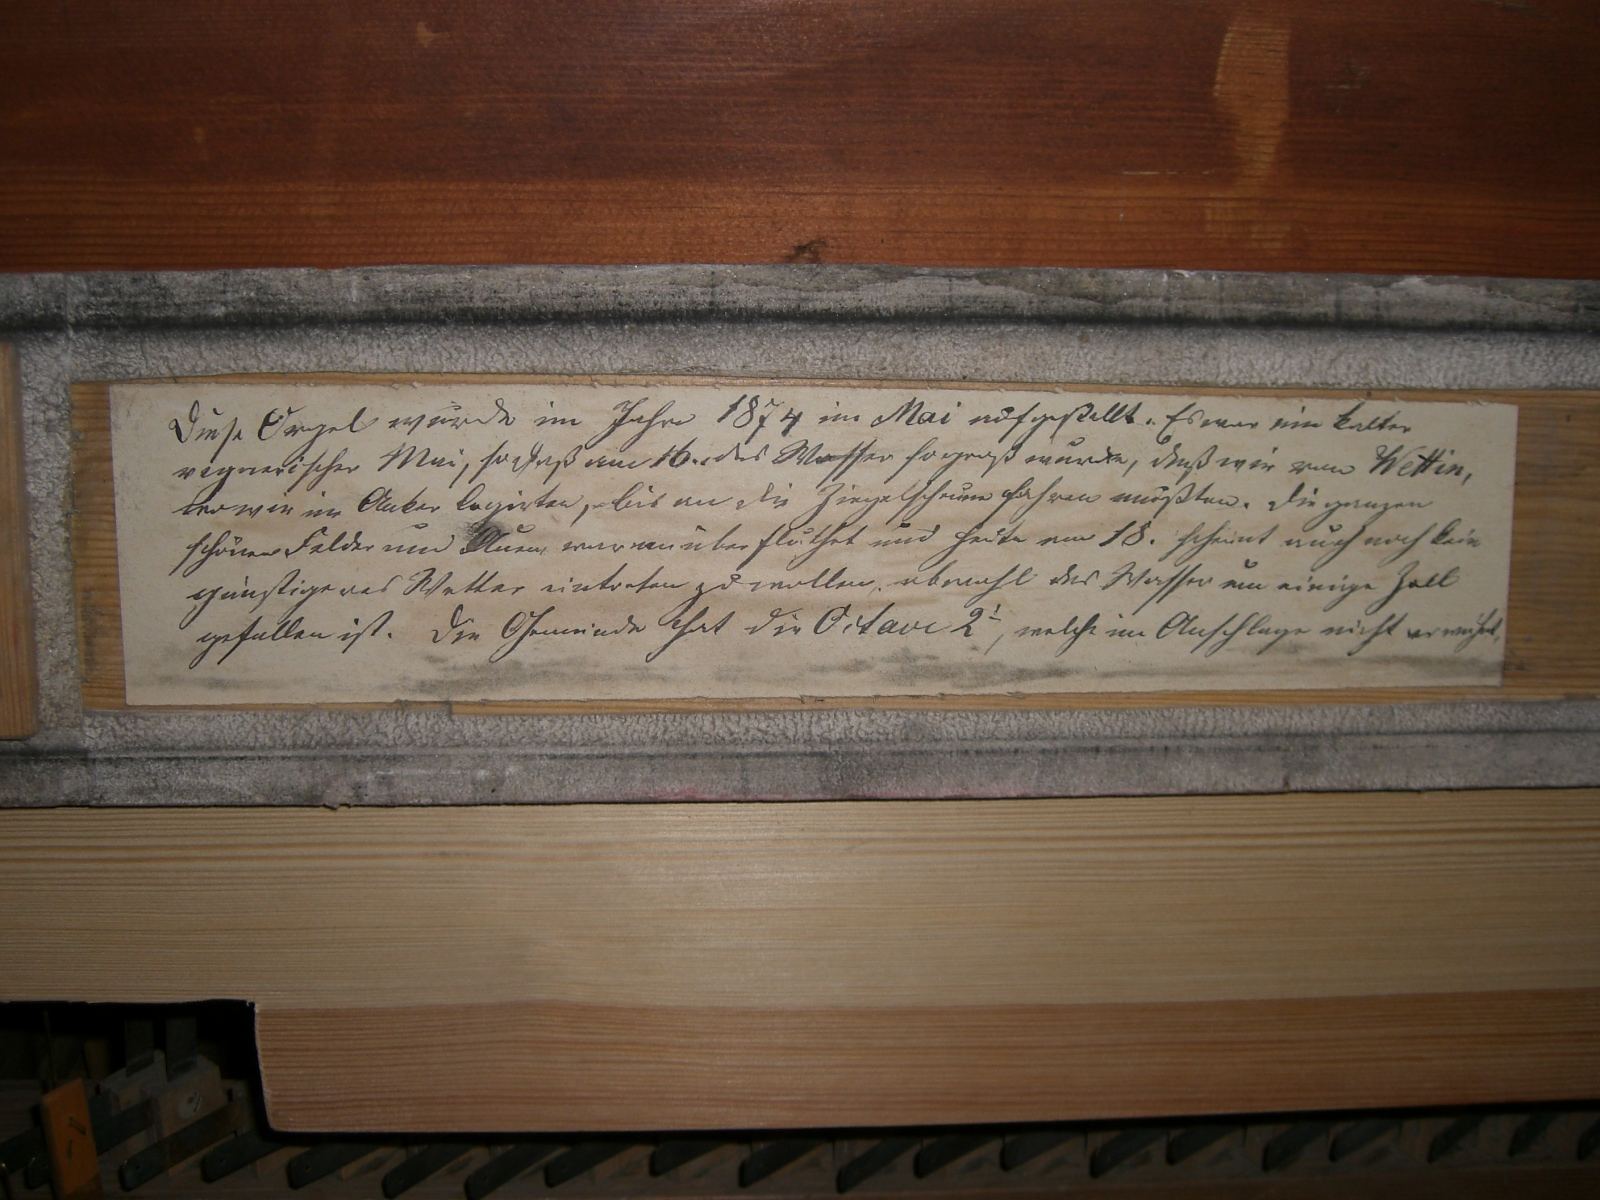 Diese Orgel wurde im Jahre 1874 im Mai aufgestellt. Es war ein kalter
regnerischer Mai, so daß am 16. das Wasser so groß wurde, daß wir von Wettin,
wo wir im Anker logirten, bis an die Ziegelscheune fahren mußten. Die ganzen
schönen Felder und Auen waren überfluthet und heute am 18. scheint auch noch kein
günstigeres Wetter eintreten zu wollen, obwohl das Wasser um einige Zoll
gefallen ist. Die Gemeinde hat die Octave 2', welche im Anschlage nicht erwähnt,